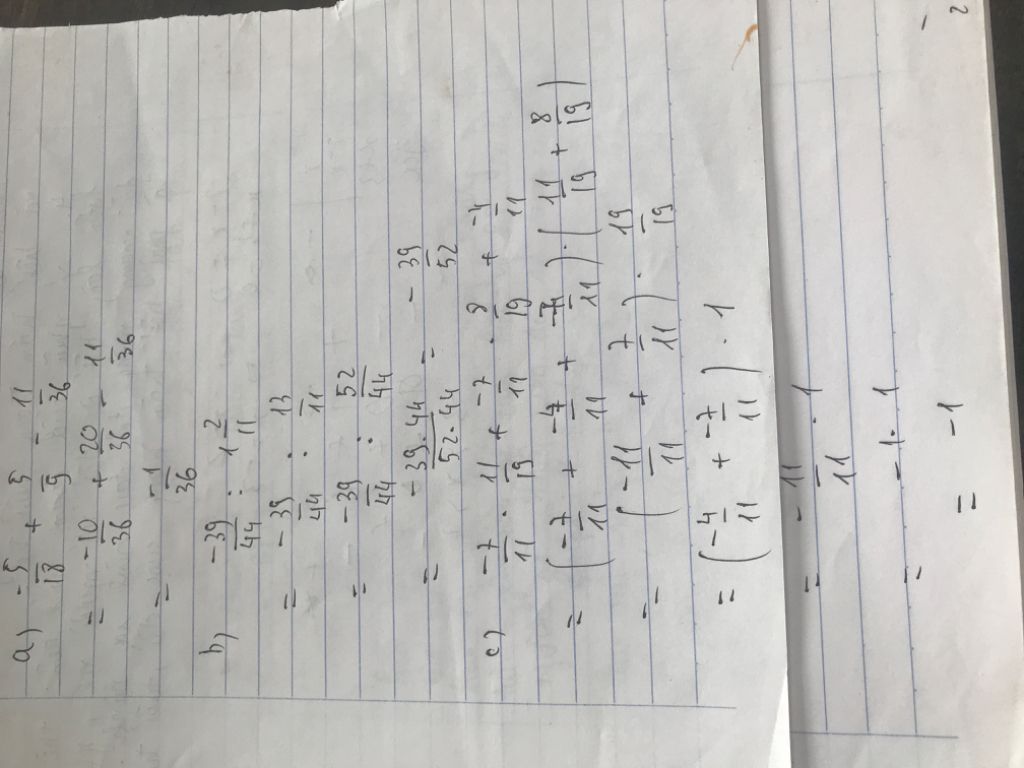 a) -5/18 + 5/9 - 11/36
= -10/36 + 20/36 - 11/36
= -1/36
b) -39/44 : 1 2/11
= -39/44 : 13/11
= -39/44 : 52/44
= -39.44/52.44 = -39/52
c) -7/11 . 11/19 + -7/11 . 8/19 + -4/11
= (-7/11 + -4/11 + -7/11) . (11/19 + 8/19)
= (-11/11 + 7/11) . 19/19
= (-4/11 + -7/11) . 1
= -11/11 . 1
= -1 . 1
= -1